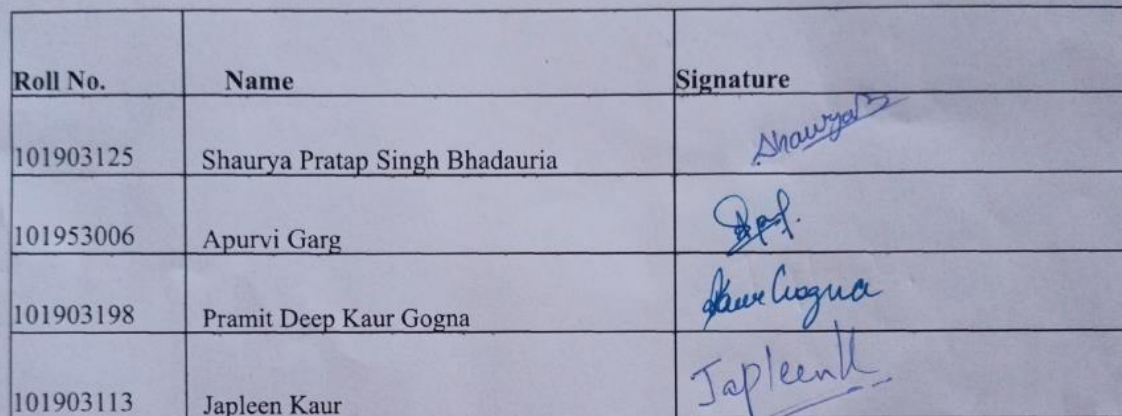 Roll No. Name Signature
101903125 Shaurya Pratap Singh Bhadauria Shaurya
101953006 Apurvi Garg
101903198 Pramit Deep Kaur Gogna Kaur Gogna
101903113 Japleen Kaur JapleenK